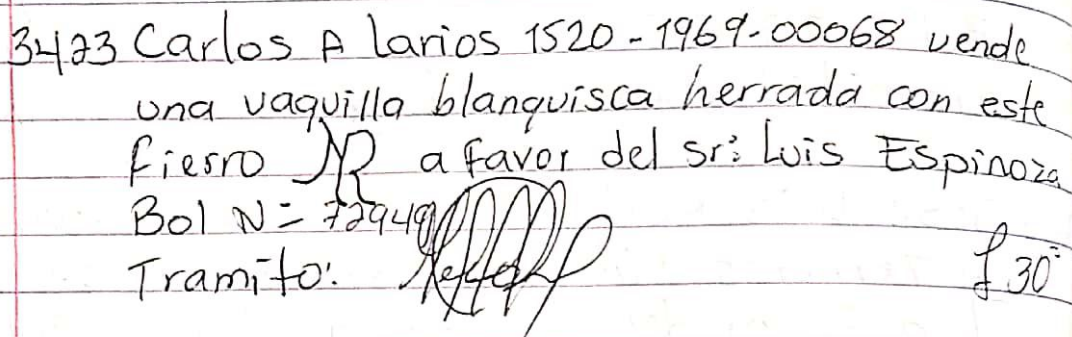 3423 Carlos A larios 1520-1969-00068 vende
una vaquilla blanquisca herrada con este
fierro JR a favor del sr: Luis Espinoza
Bol N= 72949
Tramito:
£ 30